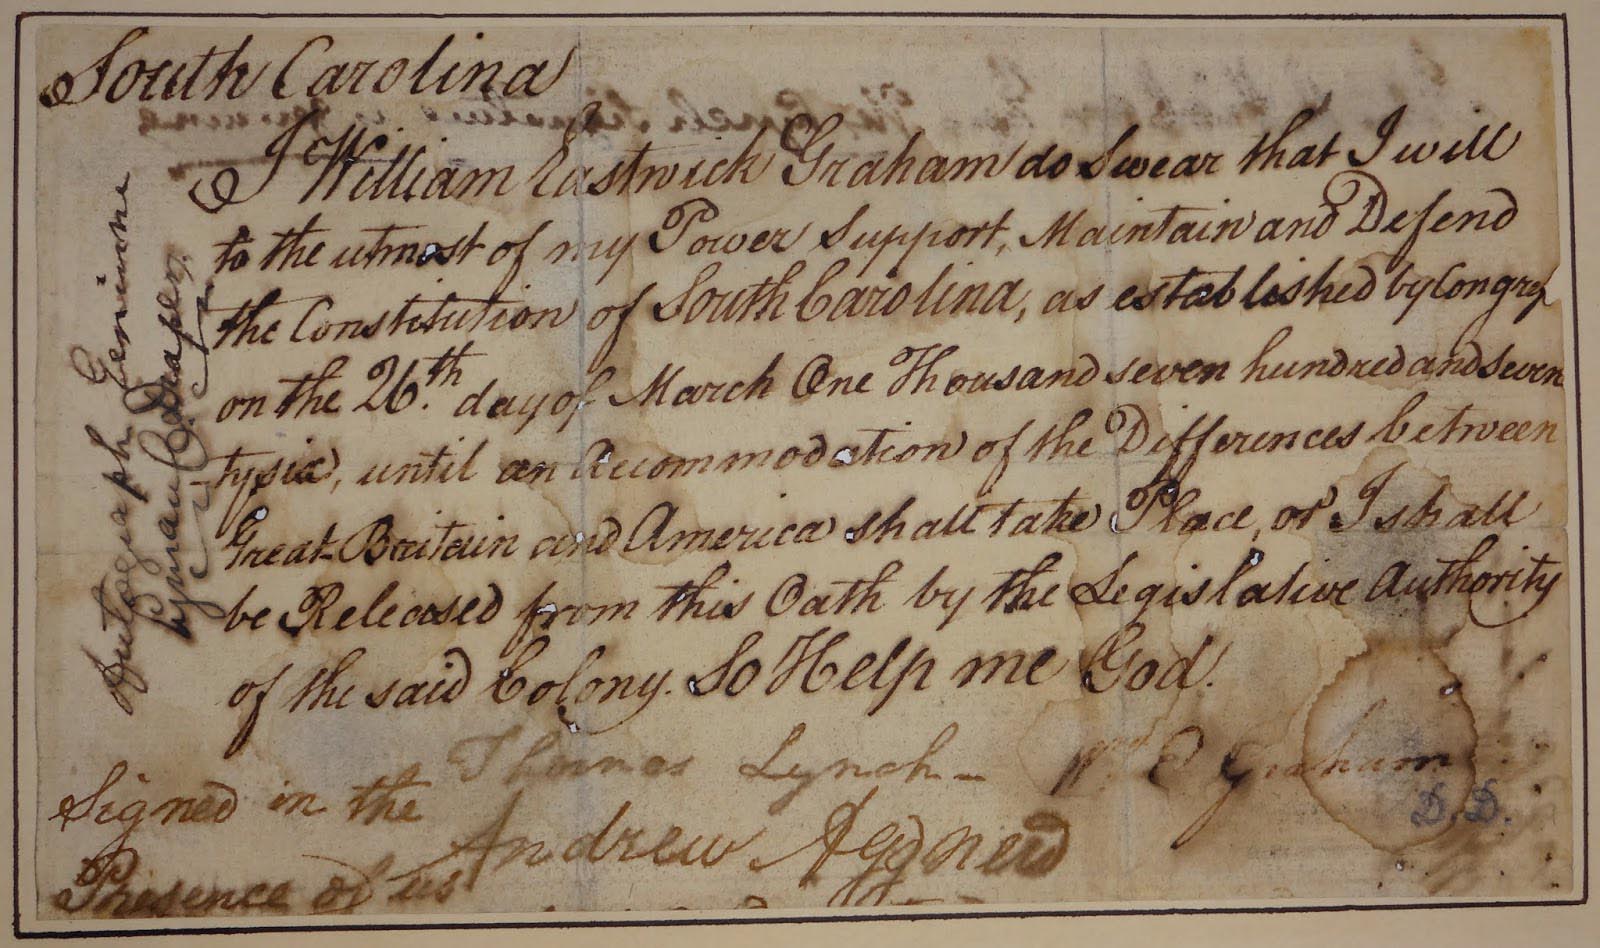 South Carolina
I William Eastwick Graham do Swear that I will
to the utmost of my Power Support, Maintain and Defend
the Constitution of South Carolina, as established by Congress
on the 26.th day of March One Thousand seven hundred and seven
ty six, until an Accommodation of the Differences between
Great-Britain and America shall take Place, or I shall
be Released from this Oath by the Legislative Authority
of the said Colony. So Help me God.
Thomas Lynch
Wm E Graham
D.D.
Signed in the
Presence of us
Andrew
Autograph Genuine
Lyman C. Draper.